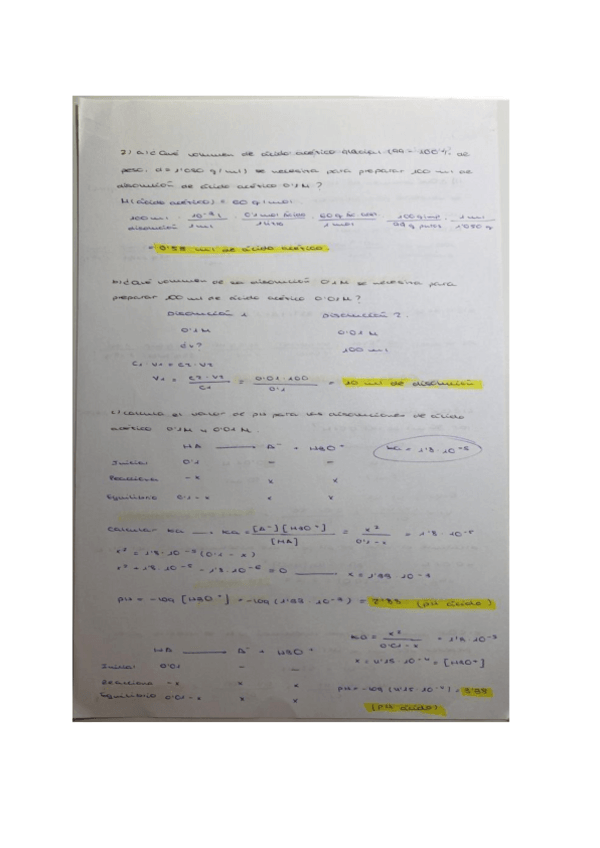 2) a) ¿Qué volumen de ácido acético glacial (99 - 100% de
peso, d = 1'080 g/ml) se necesita para preparar 100 ml de
disolución de ácido acético 0'1 M?
M(ácido acético) = 60 g/mol
100 ml disolución · 10⁻³ l / 1 ml · 0'1 mol ácido / 1 litro · 60 g / 1 mol · 100 g / 99 g puros · 1 ml / 1'080 g
= 0'58 ml de ácido acético
b) ¿Qué volumen de la disolución 0'1 M se necesita para
preparar 100 ml de ácido acético 0'01 M?
Disolución 1 Disolución 2
0'1 M 0'01 M
¿v? 100 ml
C1 · V1 = C2 · V2
V1 = C2 · V2 / C1 = 0'01 · 100 / 0'1 = 10 ml de disolución
c) Calcula el valor de pH para las disoluciones de ácido
acético 0'1 M y 0'01 M.
HA → A⁻ + H3O⁺ Ka = 1'8 · 10⁻⁵
Inicial 0'1 - -
Reacciona -x x x
Equilibrio 0'1-x x x
Calcular Ka → Ka = [A⁻][H3O⁺] / [HA] = x² / 0'1-x = 1'8 · 10⁻⁵
x² = 1'8 · 10⁻⁵ (0'1 - x)
x² + 1'8 · 10⁻⁵ - 1'8 · 10⁻⁶ = 0 x = 1'33 · 10⁻³
pH = -log [H3O⁺] = -log (1'33 · 10⁻³) = 2'88 (pH ácido)
HA → A⁻ + H3O⁺ Ka = x² / 0'01-x = 1'8 · 10⁻⁵
Inicial 0'01 - - x = 4'15 · 10⁻⁴ = [H3O⁺]
Reacciona -x x x
Equilibrio 0'01-x x x pH = -log (4'15 · 10⁻⁴) = 3'38
(pH ácido)